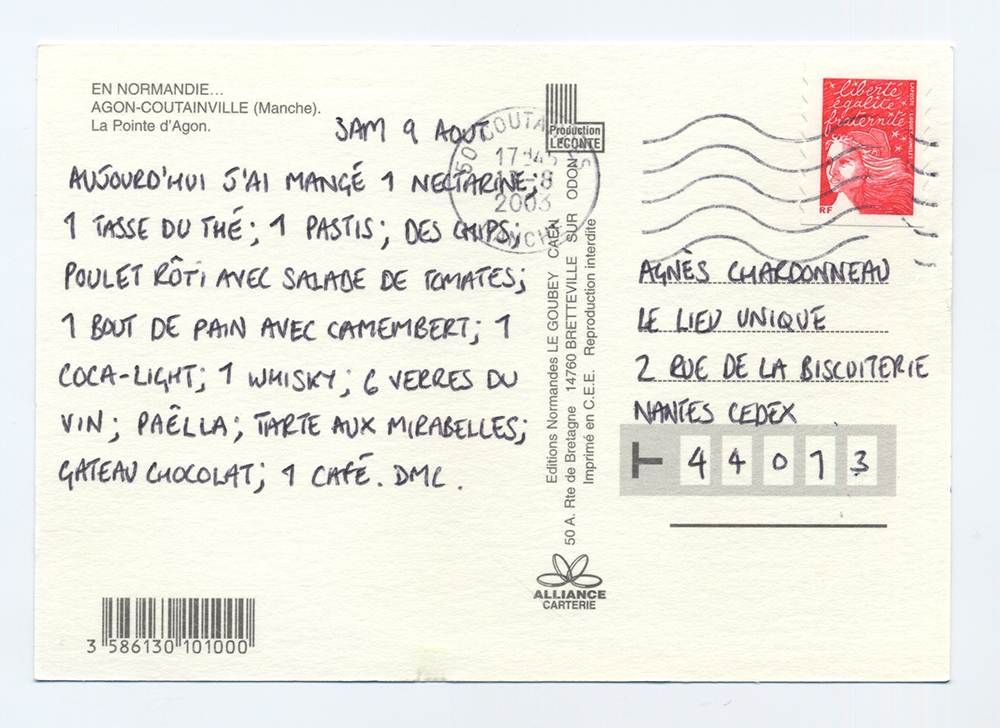 EN NORMANDIE...
AGON-COUTAINVILLE (Manche).
La Pointe d'Agon.
SAM 9 AOUT
AUJOURD'HUI J'AI MANGÉ 1 NECTARINE;
1 TASSE DU THÉ; 1 PASTIS; DES CHIPS;
POULET RÔTI AVEC SALADE DE TOMATES;
1 BOUT DE PAIN AVEC CAMEMBERT; 1
COCA-LIGHT; 1 WHISKY; 6 VERRES DU
VIN; PAËLLA; TARTE AUX MIRABELLES;
GATEAU CHOCOLAT; 1 CAFÉ. DMC.
3 586130 101000
Production
LECONTE
Editions Normandes LE GOUBEY CAEN
50 A. Rte de Bretagne 14760 BRETTEVILLE SUR ODON
Imprimé en C.E.E. Reproduction interdite
ALLIANCE
CARTERIE
50
2003
liberté
égalité
fraternité
RF
LA POSTE
AGNÈS CHARDONNEAU
LE LIEU UNIQUE
2 RUE DE LA BISCUITERIE
NANTES CEDEX
44013